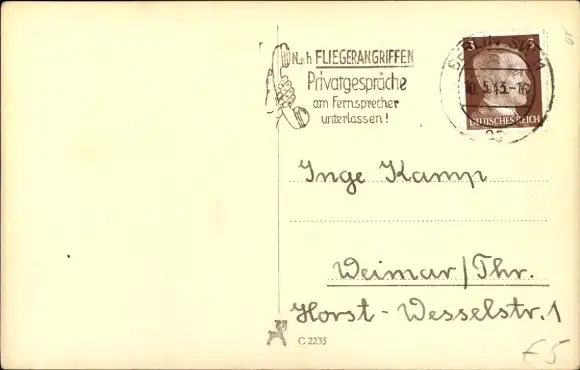 Nach FLIEGERANGRIFFEN
Privatgespräche
am Fernsprecher
unterlassen!
BERLIN
10.5.43.-16
3 3
DEUTSCHES REICH
Inge Kamp
Weimar/Thr.
Horst-Wesselstr. 1
C 2235
€5